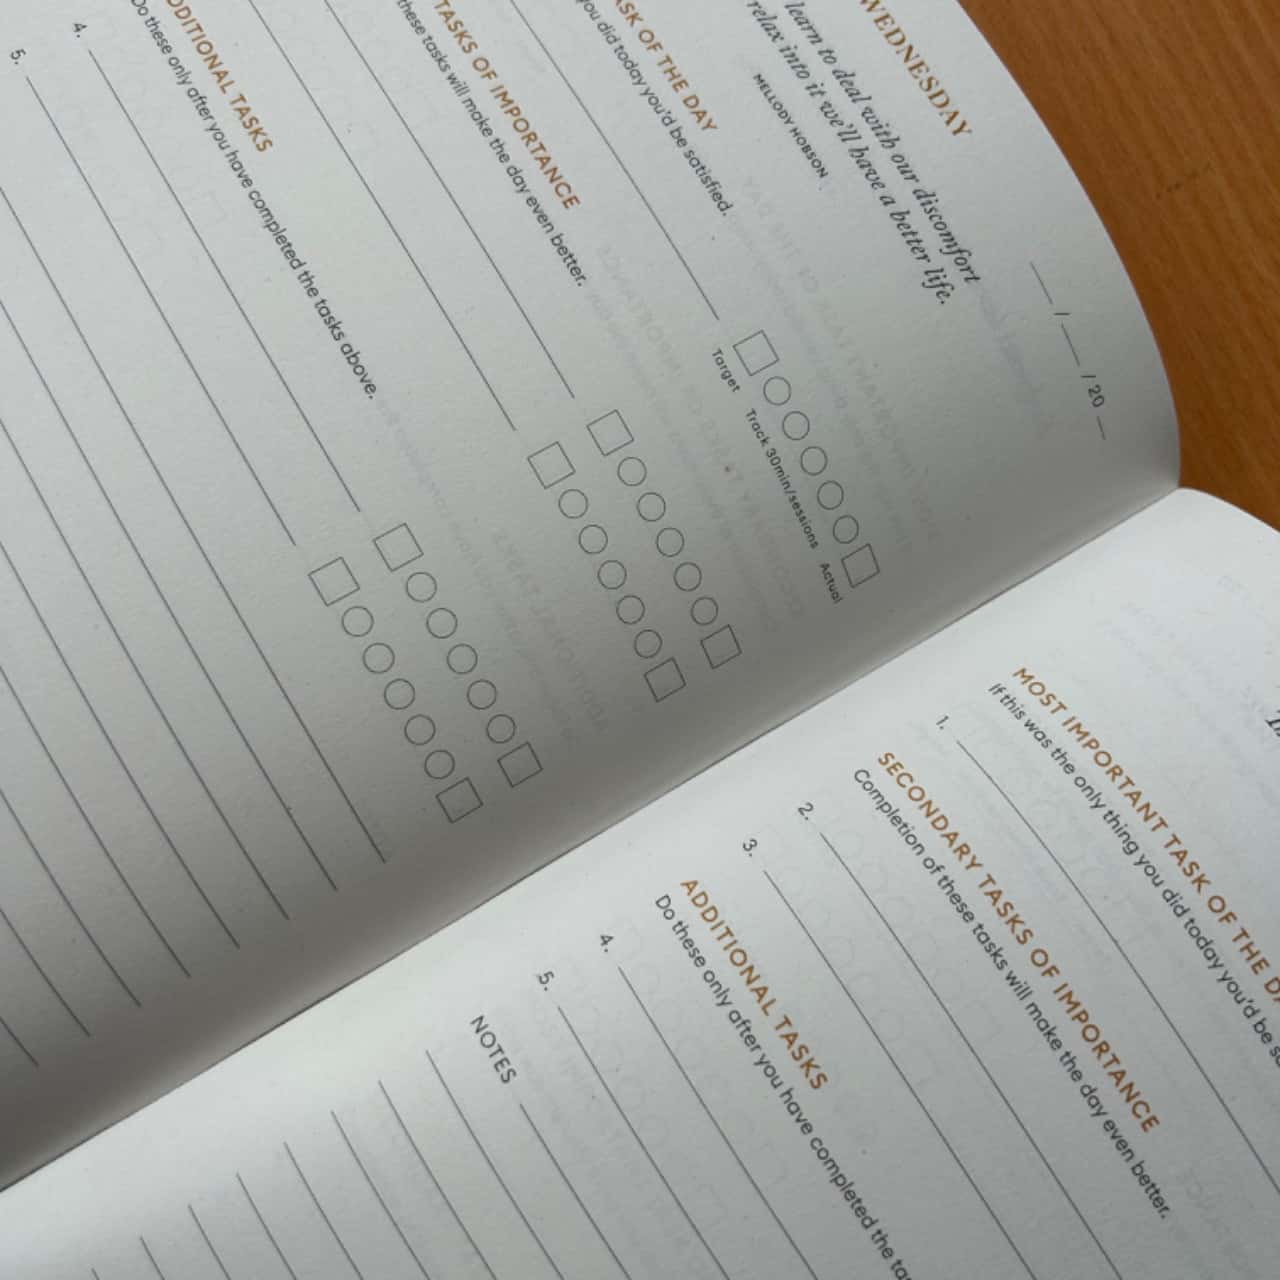 WEDNESDAY
/ / 20
learn to deal with our discomfort
relax into it we'll have a better life.
MELLODY HOBSON
OF THE DAY
you did today you'd be satisfied.
Target Track 30min/sessions Actual
TASKS OF IMPORTANCE
these tasks will make the day even better.
TASKS
Do these only after you have completed the tasks above.
4.
5.
MOST IMPORTANT TASK OF THE
If this was the only thing you did today you'd be
1.
SECONDARY TASKS OF IMPORTANCE
Completion of these tasks will make the day even better.
2.
3.
ADDITIONAL TASKS
Do these only after you have completed the
4.
5.
NOTES